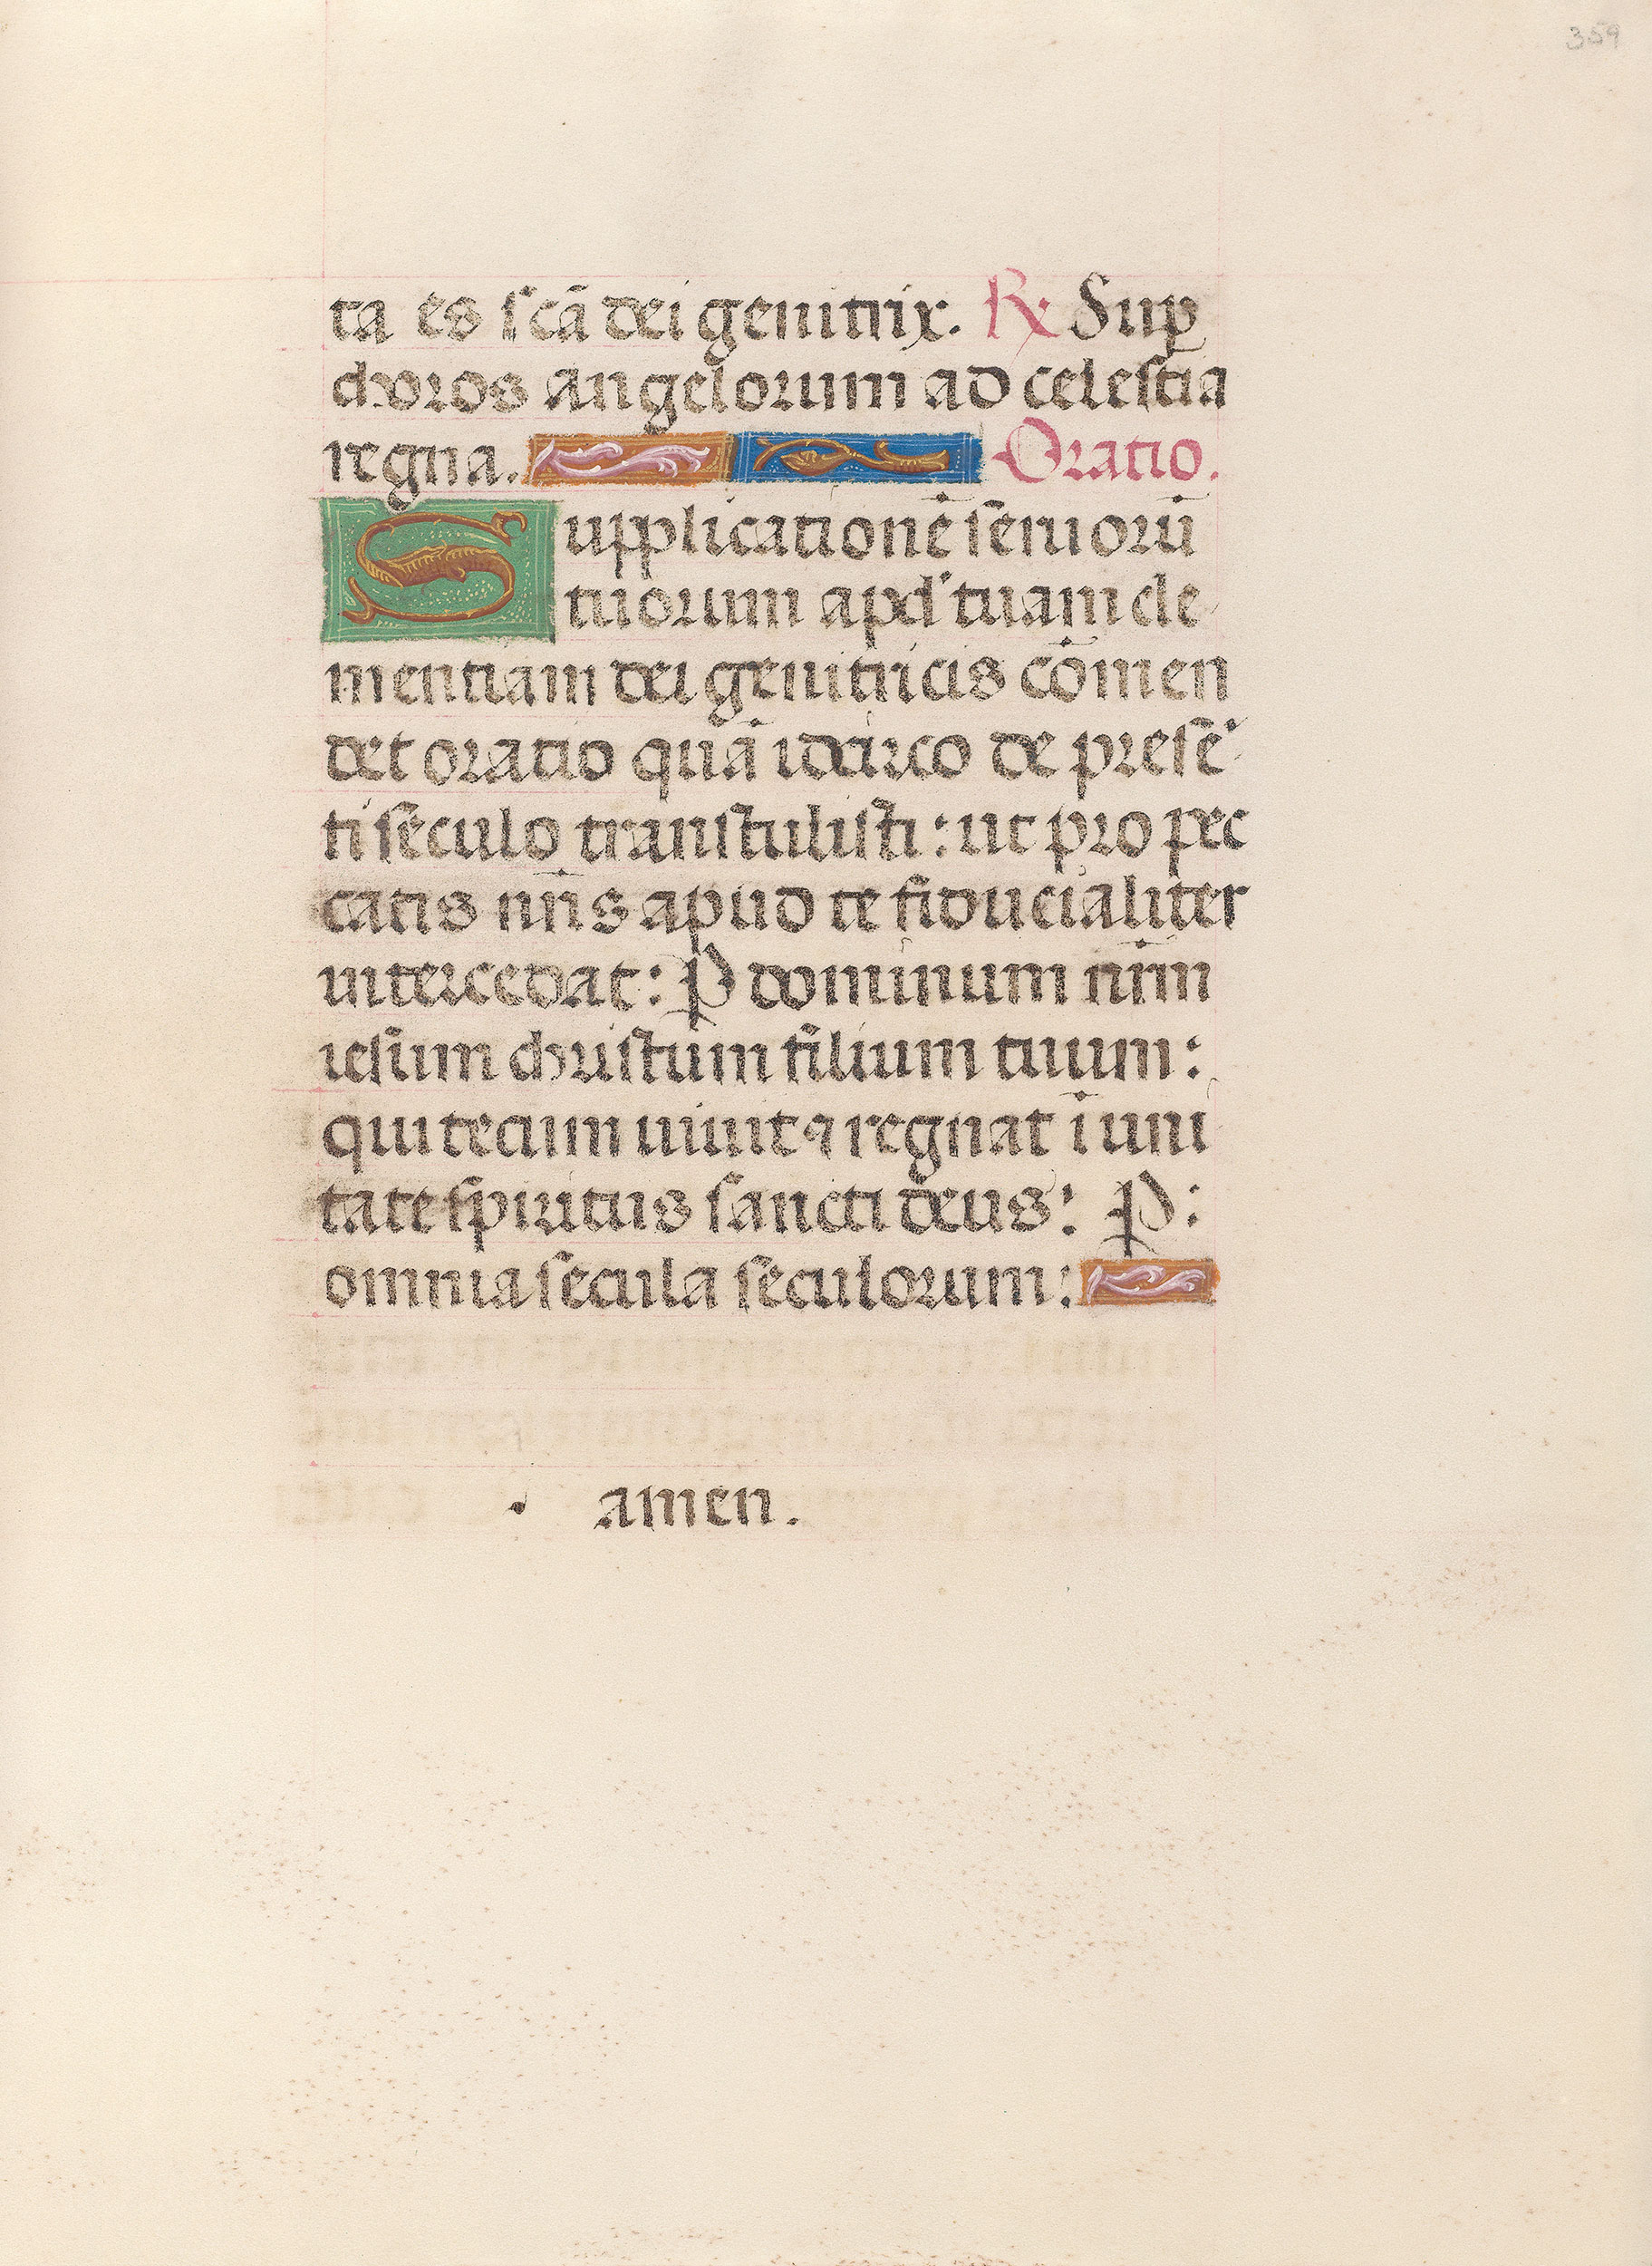 359
ta es scā dei genitrix. ℟ Sup̱
choros angelorum ad celestia
regna. Oratio.
Supplicationē seruorū
tuorum apd' tuam cle
mentiam dei genitricis cōmen
det oratio quā idcirco de presē
ti seculo transtulisti: ut pro pec
catis nr̄is apud te fiducialiter
intercedat: P dominum nr̄m
iesum christum filium tuum:
qui tecum uiuit ⁊ regnat ī uni
tate spiritus sancti deus: P:
omnia secula seculorum:
amen.